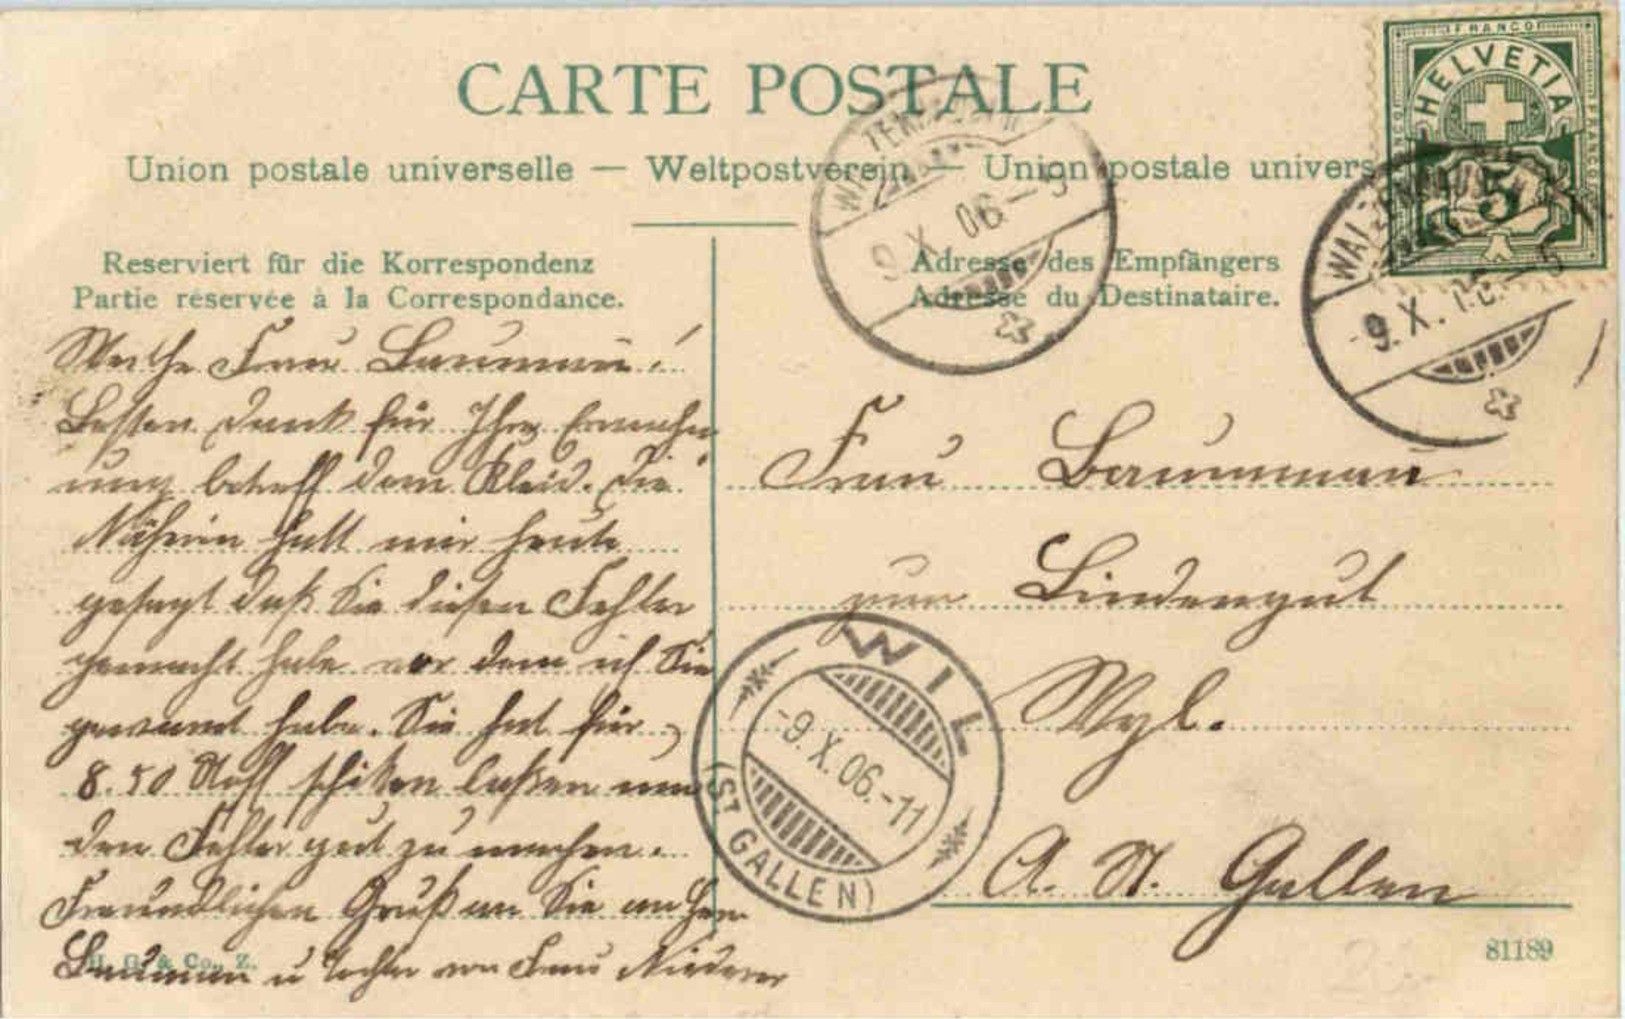 CARTE POSTALE
Union postale universelle — Weltpostverein — Union postale univers
Reserviert für die Korrespondenz
Partie réservée à la Correspondance.
Adresse des Empfängers
Adresse du Destinataire.
FRANCO
HELVETIA
5
WALZENHAUSEN
9.X.06.–5
WALZENHAUSEN
-9.X. –5
Werthe Frau Baumman!
Besten Dank für Ihre Ermahn
ung betreff dem Kleid. Die
Näherin hatt mir heute
gesagt daß Sie diesen Fehler
gemacht habe vor dem ich Sie
gewarnt habe. Sie hat für
8.50 Stoff schiken laßen um
den Fehler gut zu machen.
Freundlichen Gruß an Sie an Herr
Baumman u Tochter von Frau Niederer
Frau Baumman
zum Lindengut
Wyl.
Ct. St. Gallen
WIL
-9.X.06.-11
(ST GALLEN)
H. G. & Co., Z.
81189